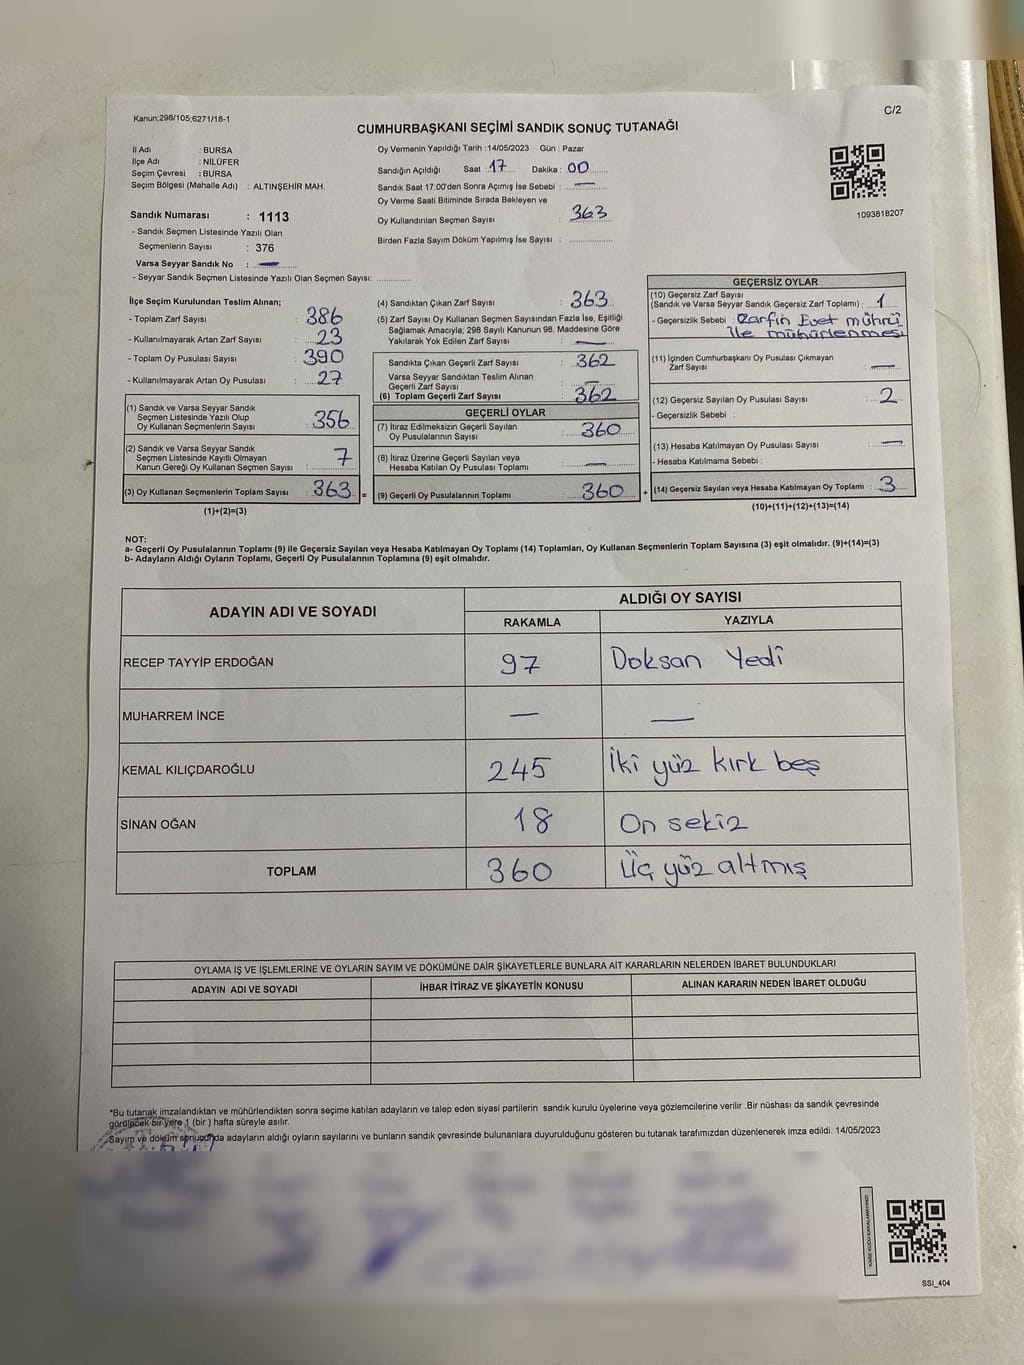 Kanun:298/105;6271/18-1
C/2
CUMHURBAŞKANI SEÇİMİ SANDIK SONUÇ TUTANAĞI
İl Adı : BURSA
İlçe Adı : NİLÜFER
Seçim Çevresi : BURSA
Seçim Bölgesi (Mahalle Adı) : ALTINŞEHİR MAH.
Sandık Numarası : 1113
- Sandık Seçmen Listesinde Yazılı Olan
Seçmenlerin Sayısı : 376
Varsa Seyyar Sandık No : —
- Seyyar Sandık Seçmen Listesinde Yazılı Olan Seçmen Sayısı: ............
Oy Vermenin Yapıldığı Tarih :14/05/2023 Gün : Pazar
Sandığın Açıldığı Saat : 17 Dakika : 00
Sandık Saat 17:00'den Sonra Açımış İse Sebebi : —
Oy Verme Saati Bitiminde Sırada Bekleyen ve
Oy Kullandırılan Seçmen Sayısı : 363
Birden Fazla Sayım Döküm Yapılmış İse Sayısı : ................
1093818207
İlçe Seçim Kurulundan Teslim Alınan;
- Toplam Zarf Sayısı : 386
- Kullanılmayarak Artan Zarf Sayısı : 23
- Toplam Oy Pusulası Sayısı : 390
- Kullanılmayarak Artan Oy Pusulası : 27
(1) Sandık ve Varsa Seyyar Sandık
Seçmen Listesinde Yazılı Olup
Oy Kullanan Seçmenlerin Sayısı : 356
(2) Sandık ve Varsa Seyyar Sandık
Seçmen Listesinde Kayıtlı Olmayan
Kanun Gereği Oy Kullanan Seçmen Sayısı : 7
(3) Oy Kullanan Seçmenlerin Toplam Sayısı : 363 =
(1)+(2)=(3)
(4) Sandıktan Çıkan Zarf Sayısı : 363
(5) Zarf Sayısı Oy Kullanan Seçmen Sayısından Fazla İse, Eşitliği
Sağlamak Amacıyla, 298 Sayılı Kanunun 98. Maddesine Göre
Yakılarak Yok Edilen Zarf Sayısı : —
Sandıkta Çıkan Geçerli Zarf Sayısı : 362
Varsa Seyyar Sandıktan Teslim Alınan
Geçerli Zarf Sayısı : —
(6) Toplam Geçerli Zarf Sayısı : 362
GEÇERLİ OYLAR
(7) İtiraz Edilmeksizin Geçerli Sayılan
Oy Pusulalarının Sayısı : 360
(8) İtiraz Üzerine Geçerli Sayılan veya
Hesaba Katılan Oy Pusulası Toplamı : —
(9) Geçerli Oy Pusulalarının Toplamı : 360 +
GEÇERSİZ OYLAR
(10) Geçersiz Zarf Sayısı
(Sandık ve Varsa Seyyar Sandık Geçersiz Zarf Toplamı) : 1
- Geçersizlik Sebebi : Zarfın Evet mührü
ile mühürlenmesi
(11) İçinden Cumhurbaşkanı Oy Pusulası Çıkmayan
Zarf Sayısı : —
(12) Geçersiz Sayılan Oy Pusulası Sayısı : 2
- Geçersizlik Sebebi :
(13) Hesaba Katılmayan Oy Pusulası Sayısı : —
- Hesaba Katılmama Sebebi :
(14) Geçersiz Sayılan veya Hesaba Katılmayan Oy Toplamı : 3
(10)+(11)+(12)+(13)=(14)
NOT:
a- Geçerli Oy Pusulalarının Toplamı (9) ile Geçersiz Sayılan veya Hesaba Katılmayan Oy Toplamı (14) Toplamları, Oy Kullanan Seçmenlerin Toplam Sayısına (3) eşit olmalıdır. (9)+(14)=(3)
b- Adayların Aldığı Oyların Toplamı, Geçerli Oy Pusulalarının Toplamına (9) eşit olmalıdır.
ADAYIN ADI VE SOYADI ALDIĞI OY SAYISI
RAKAMLA YAZIYLA
RECEP TAYYİP ERDOĞAN 97 Doksan Yedi
MUHARREM İNCE — —
KEMAL KILIÇDAROĞLU 245 İki yüz kırk beş
SİNAN OĞAN 18 On sekiz
TOPLAM 360 Üç yüz altmış
OYLAMA İŞ VE İŞLEMLERİNE VE OYLARIN SAYIM VE DÖKÜMÜNE DAİR ŞİKAYETLERLE BUNLARA AİT KARARLARIN NELERDEN İBARET BULUNDUKLARI
ADAYIN ADI VE SOYADI İHBAR İTİRAZ VE ŞİKAYETİN KONUSU ALINAN KARARIN NEDEN İBARET OLDUĞU
*Bu tutanak imzalandıktan ve mühürlendikten sonra seçime katılan adayların ve talep eden siyasi partilerin sandık kurulu üyelerine veya gözlemcilerine verilir .Bir nüshası da sandık çevresinde
görülecek bir yere 1 (bir ) hafta süreyle asılır.
Sayım ve döküm sonucunda adayların aldığı oyların sayılarını ve bunların sandık çevresinde bulunanlara duyurulduğunu gösteren bu tutanak tarafımızdan düzenlenerek imza edildi. 14/05/2023
KARE KODU KARALAMAYINIZ!
SSI_404